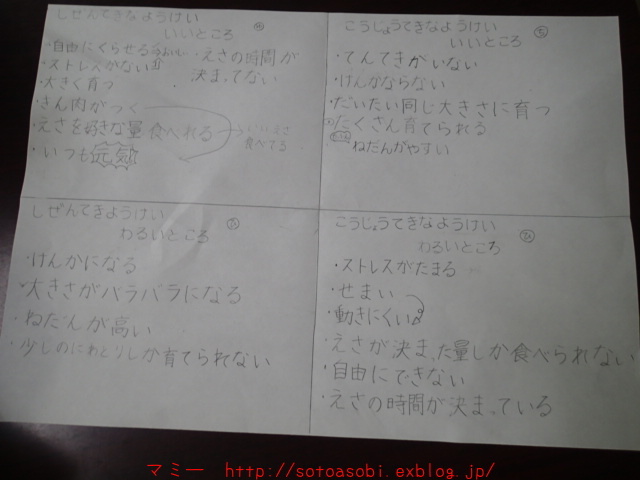 しぜんてきなようけい
いいところ
・自由にくらせる
・ストレスがない
・大きく育つ
・きん肉がつく
・えさを好きな量食べれる
・いつも元気
・えさの時間が
決まってない
食べてる
こうじょうてきなようけい
いいところ
・てんてきがいない
・けんかならない
・だいたい同じ大きさに育つ
・たくさん育てられる
・ねだんがやすい
しぜんてきようけい
わるいところ
・けんかになる
・大きさがバラバラになる
・ねだんが高い
・少しのにわとりしか育てられない
こうじょうてきなようけい
わるいところ
・ストレスがたまる
・せまい
・動きにくい
・えさが決まった量しか食べられない
・自由にできない
・えさの時間が決まっている
マミー http://sotoasobi.exblog.jp/